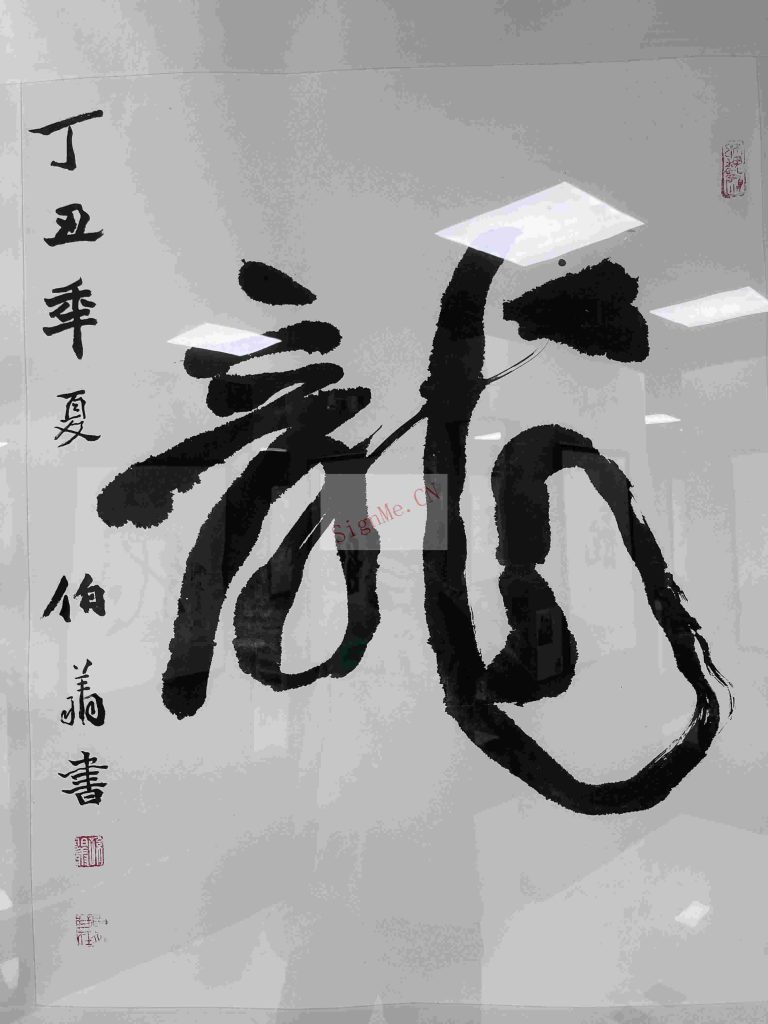 龍
丁丑年夏 伯翁書
SignMe.CN